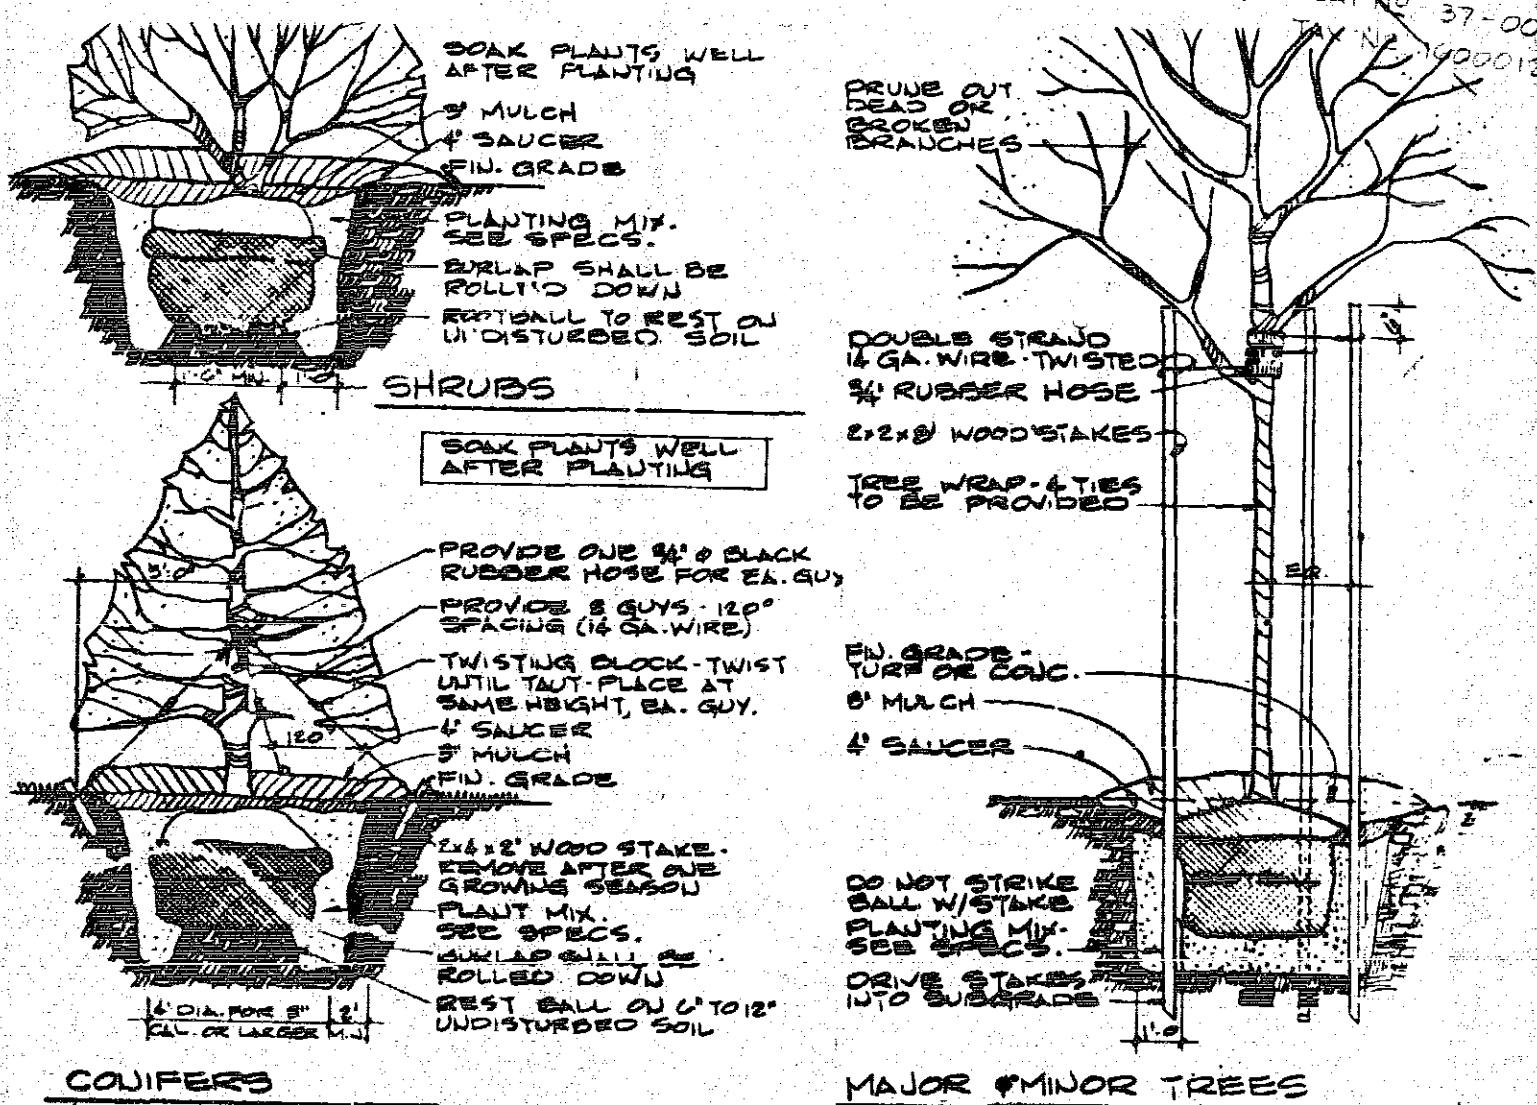 SOAK PLANTS WELL
AFTER PLANTING
3" MULCH
4" SAUCER
FIN. GRADE
PLANTING MIX.
SEE SPECS.
BURLAP SHALL BE
ROLLED DOWN
ROOTBALL TO REST ON
UNDISTURBED SOIL
1'-0" MIN. 1'-0"
SHRUBS
SOAK PLANTS WELL
AFTER PLANTING
PROVIDE ONE 3/4" Ø BLACK
RUBBER HOSE FOR EA. GUY
PROVIDE 3 GUYS - 120°
SPACING (14 GA. WIRE)
TWISTING BLOCK - TWIST
UNTIL TAUT - PLACE AT
SAME HEIGHT, EA. GUY.
4" SAUCER
3" MULCH
FIN. GRADE
3'-0"
120
2x4x2' WOOD STAKE -
REMOVE AFTER ONE
GROWING SEASON
PLANT MIX.
SEE SPECS.
BURLAP SHALL BE
ROLLED DOWN
REST BALL ON 6" TO 12"
UNDISTURBED SOIL
4' DIA. FOR 3" 2'
CAL. OR LARGER MIN
CONIFERS
37-00
TAX NO
PRUNE OUT
DEAD OR
BROKEN
BRANCHES
DOUBLE STRAND
14 GA. WIRE - TWISTED
3/4" RUBBER HOSE
2x2x8' WOOD STAKES
TREE WRAP - 4 TIES
TO BE PROVIDED
EQ.
FIN. GRADE -
TURF OR CONC.
3" MULCH
4" SAUCER
DO NOT STRIKE
BALL W/ STAKE
PLANTING MIX -
SEE SPECS.
DRIVE STAKES
INTO SUBGRADE
1'-0
MAJOR & MINOR TREES